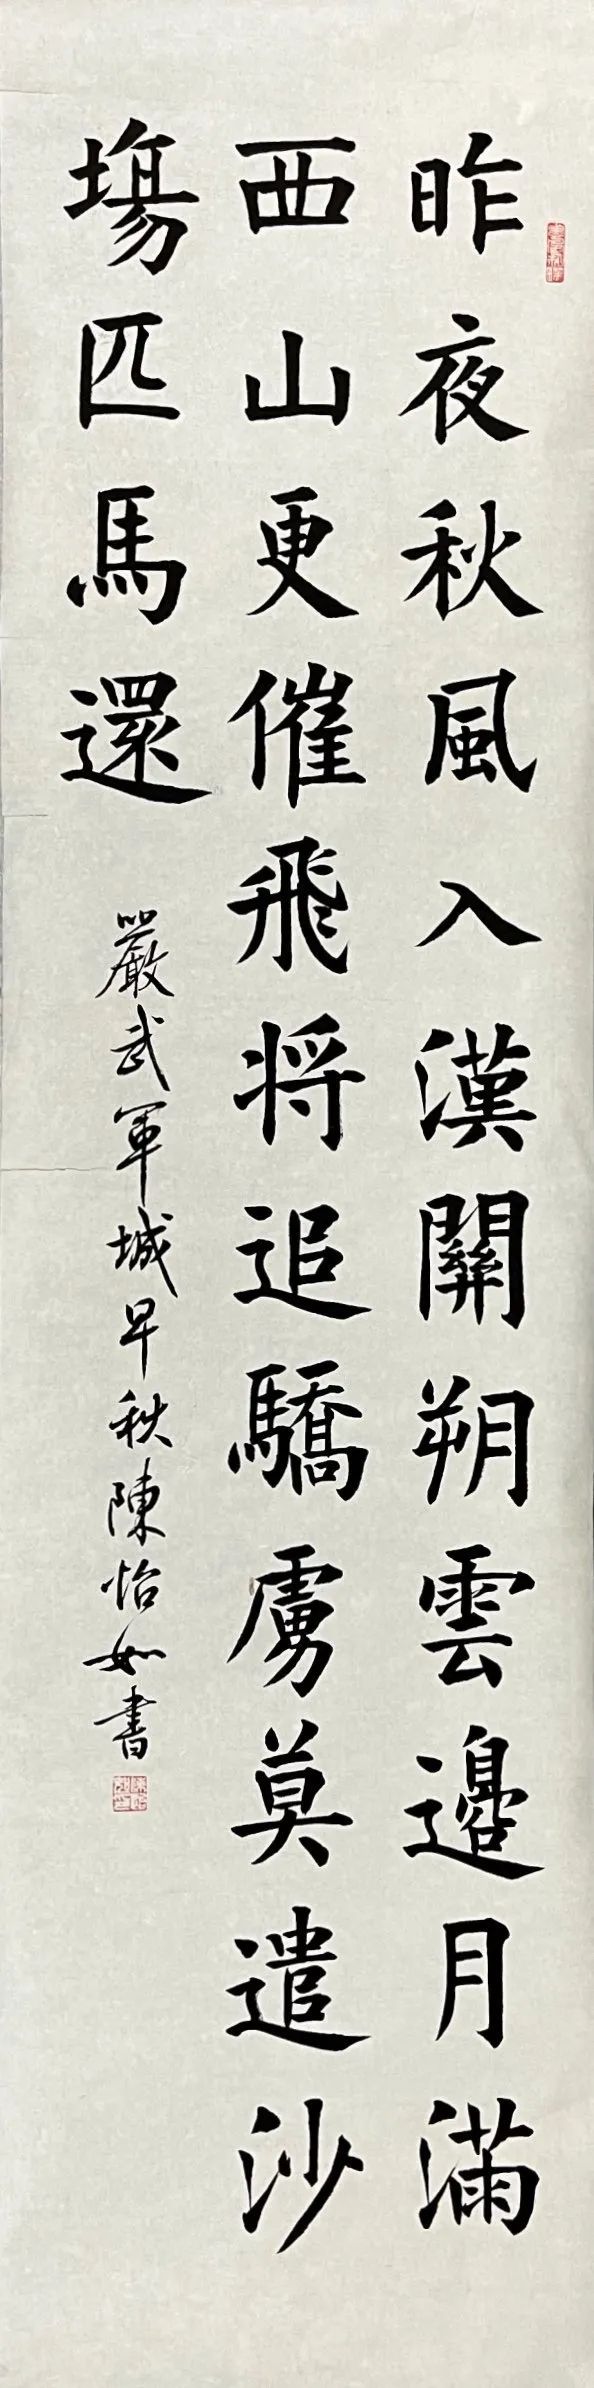 昨夜秋風入漢關朔雲邊月滿
西山更催飛将追驕虜莫遣沙
場匹馬還
嚴武軍城早秋陳怡如書